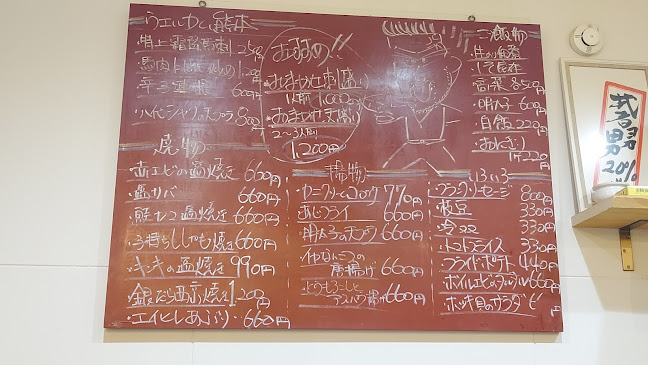 ウエルカム熊本
・特上霜降馬刺
・辛子蓮根 600円
800円
おすすめ!!
・おまかせ刺し盛り
1人前 1,000円
・おまかせ天盛り
2〜3人前
1,200円
ご飯物
・高菜 各550円
・明太子 600円
・白飯 220円
・おにぎり
1ケ220円
焼物
・赤エビの塩焼き 660円
・塩サバ 660円
・鮭ハラス塩焼き 660円
・子持ちししゃも焼き 660円
・キンキの塩焼き 990円
・銀だら西京焼き 1,200円
・エイヒレあぶり 660円
揚物
・カニクリームコロッケ 770円
・あじフライ 660円
・明太子の天プラ 660円
唐揚げ 660円
・とうもろこしと
アスパラ揚げ 660円
いろいろ
・フランクソーセージ 800円
・枝豆 330円
・冷奴 330円
・トマトスライス 330円
・フライドポテト 440円
・ボイルエビ 660円
・ホッキ貝のサラダ
男
20%